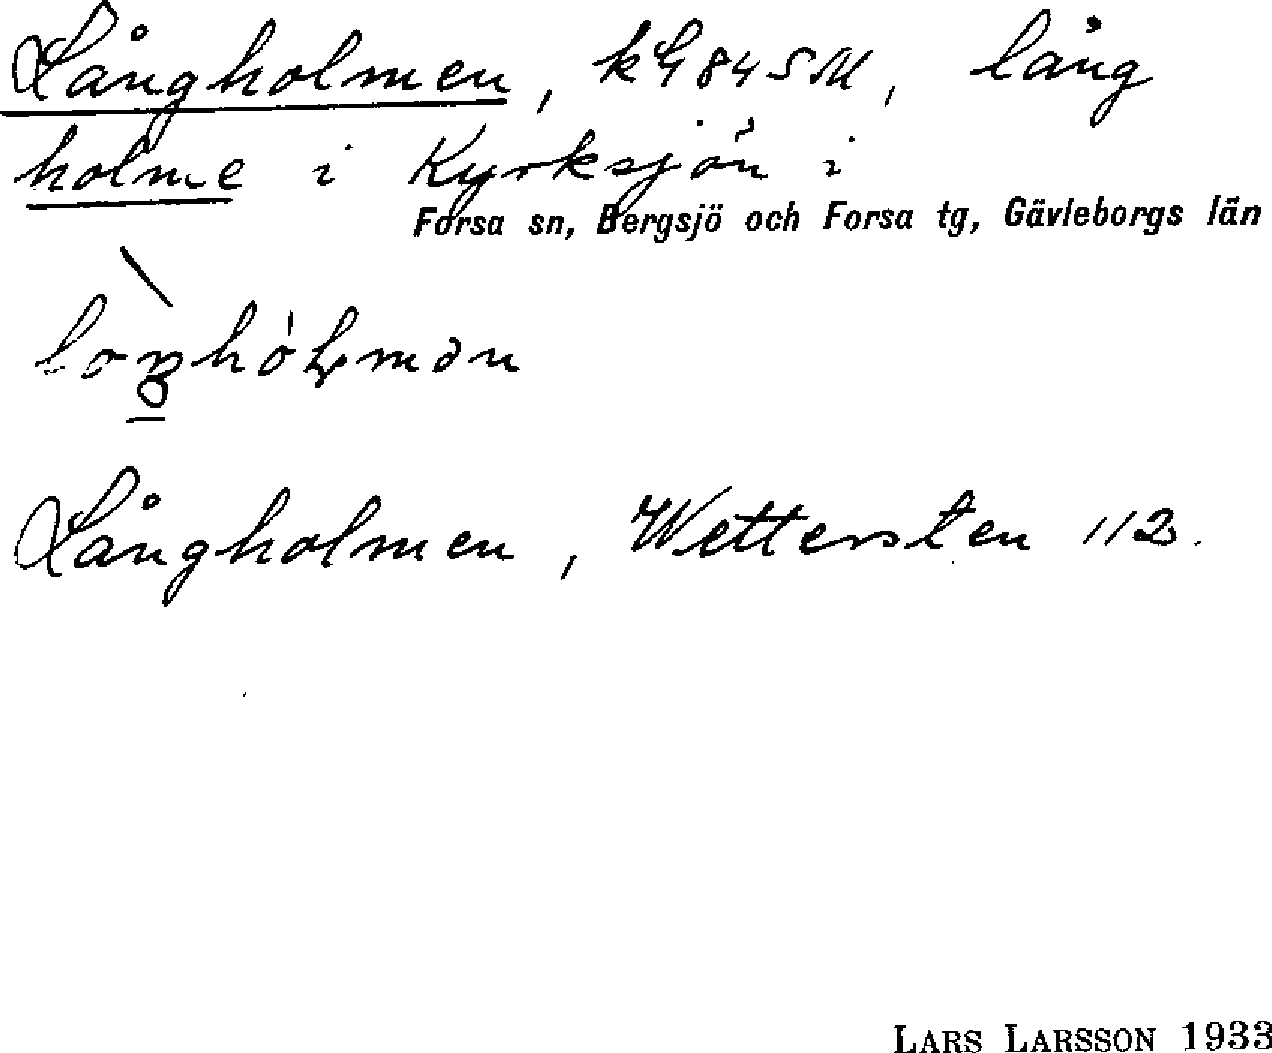 Långholmen, k4 845M, lång
holme i Kyrksjön i
Forsa sn, Bergsjö och Forsa tg, Gävleborgs län
Långholmen, Wettersten 112.
LARS LARSSON 1933